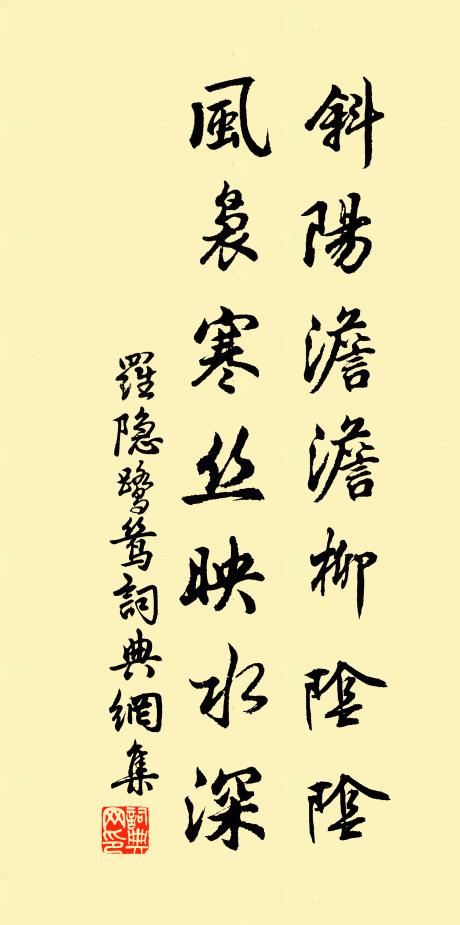 斜陽澹澹柳陰陰
風裊寒丝映水深
羅隐鹭鸶詞典網集
詞典网印